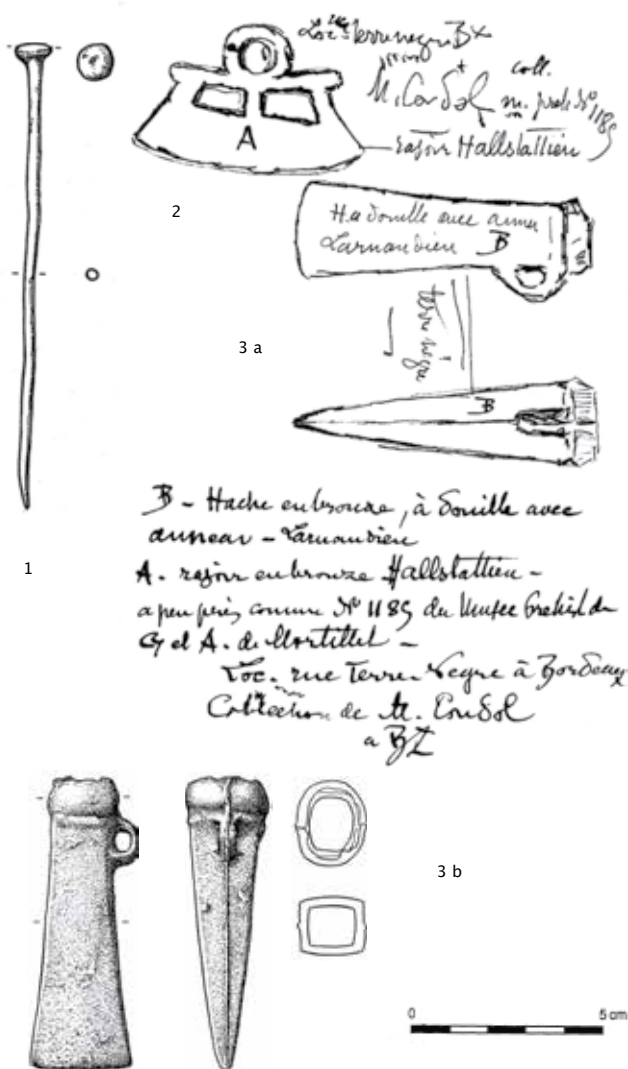 Loc. rue Terre negre Bx
M. Condol coll.
m. preh. N° 1189
A
rasoir Hallstattien
2
H. a douille avec anneau
Larnaudien B
terre nègre
3 a
B
B - Hache en bronze, à douille avec
anneau - Larnaudien
1
A. rasoir en bronze Hallstattien -
a peu près comme N° 1189 du Musée Préhist. de
G et A. de Mortillet -
Loc. rue Terre-Negre à Bordeaux
Collection de M. Condol
a Bx
3 b
0 5 cm